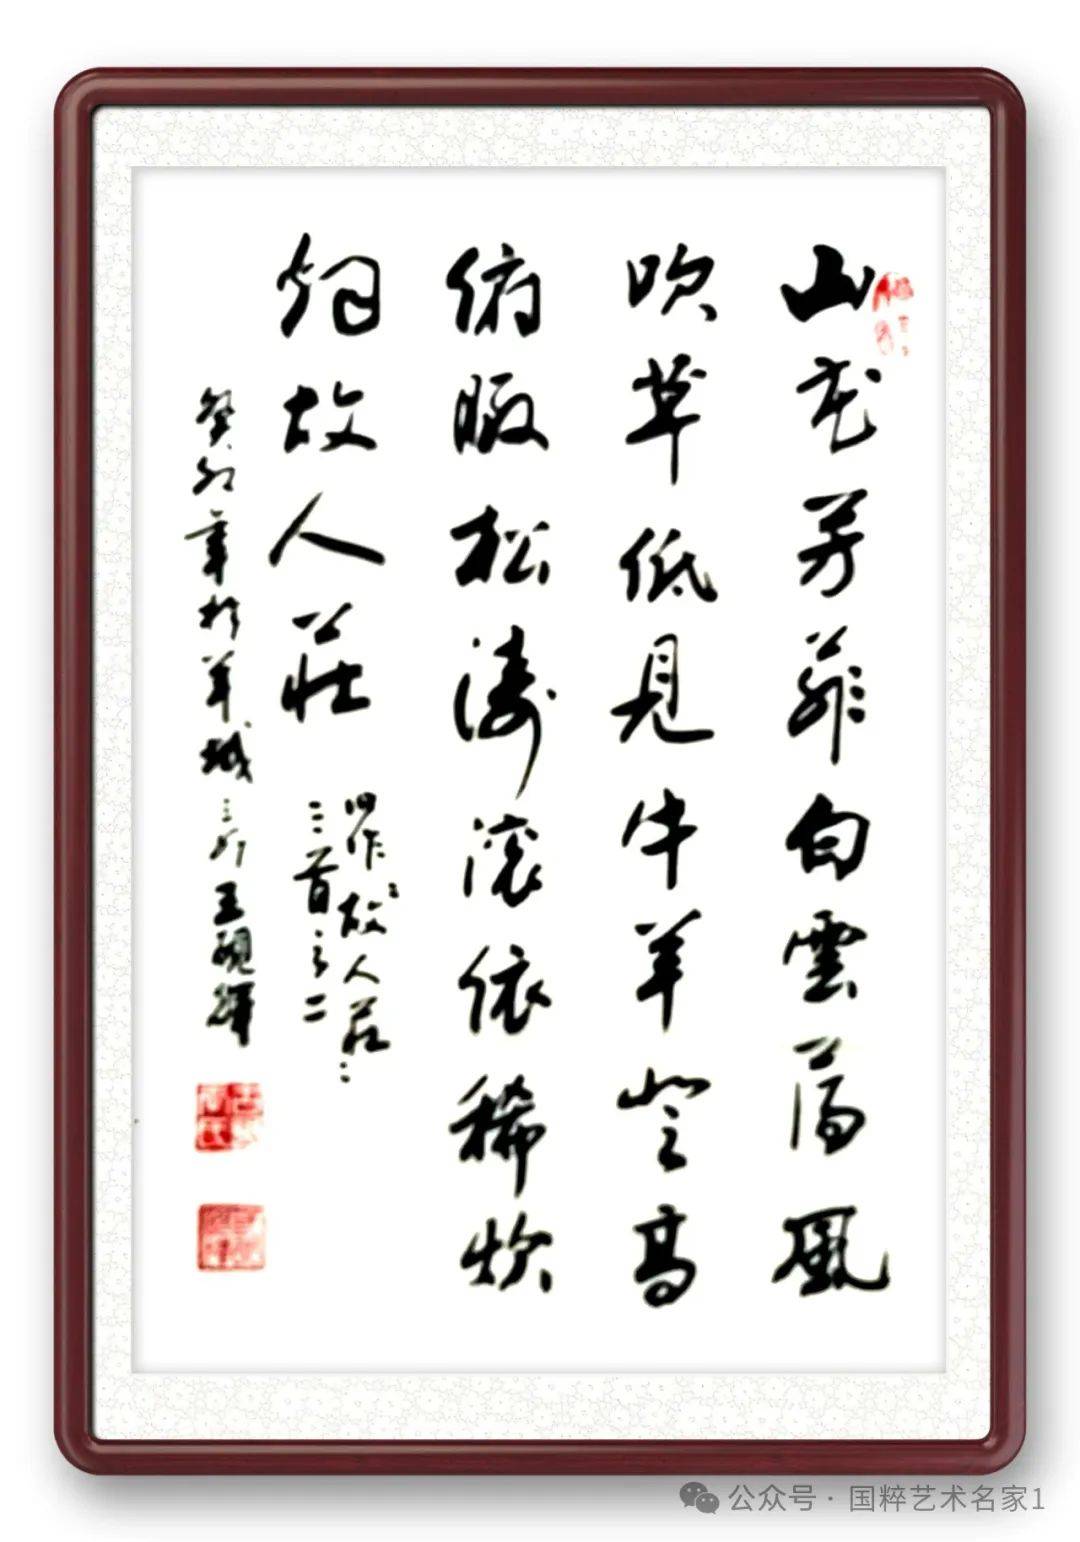 山花芳菲白雲蕩風
吹草低見牛羊登高
俯瞰松濤滾依稀炊
烟故人莊
旧作故人莊
三首之二
癸卯年於羊城 王硯輝
公众号 · 国粹艺术名家1